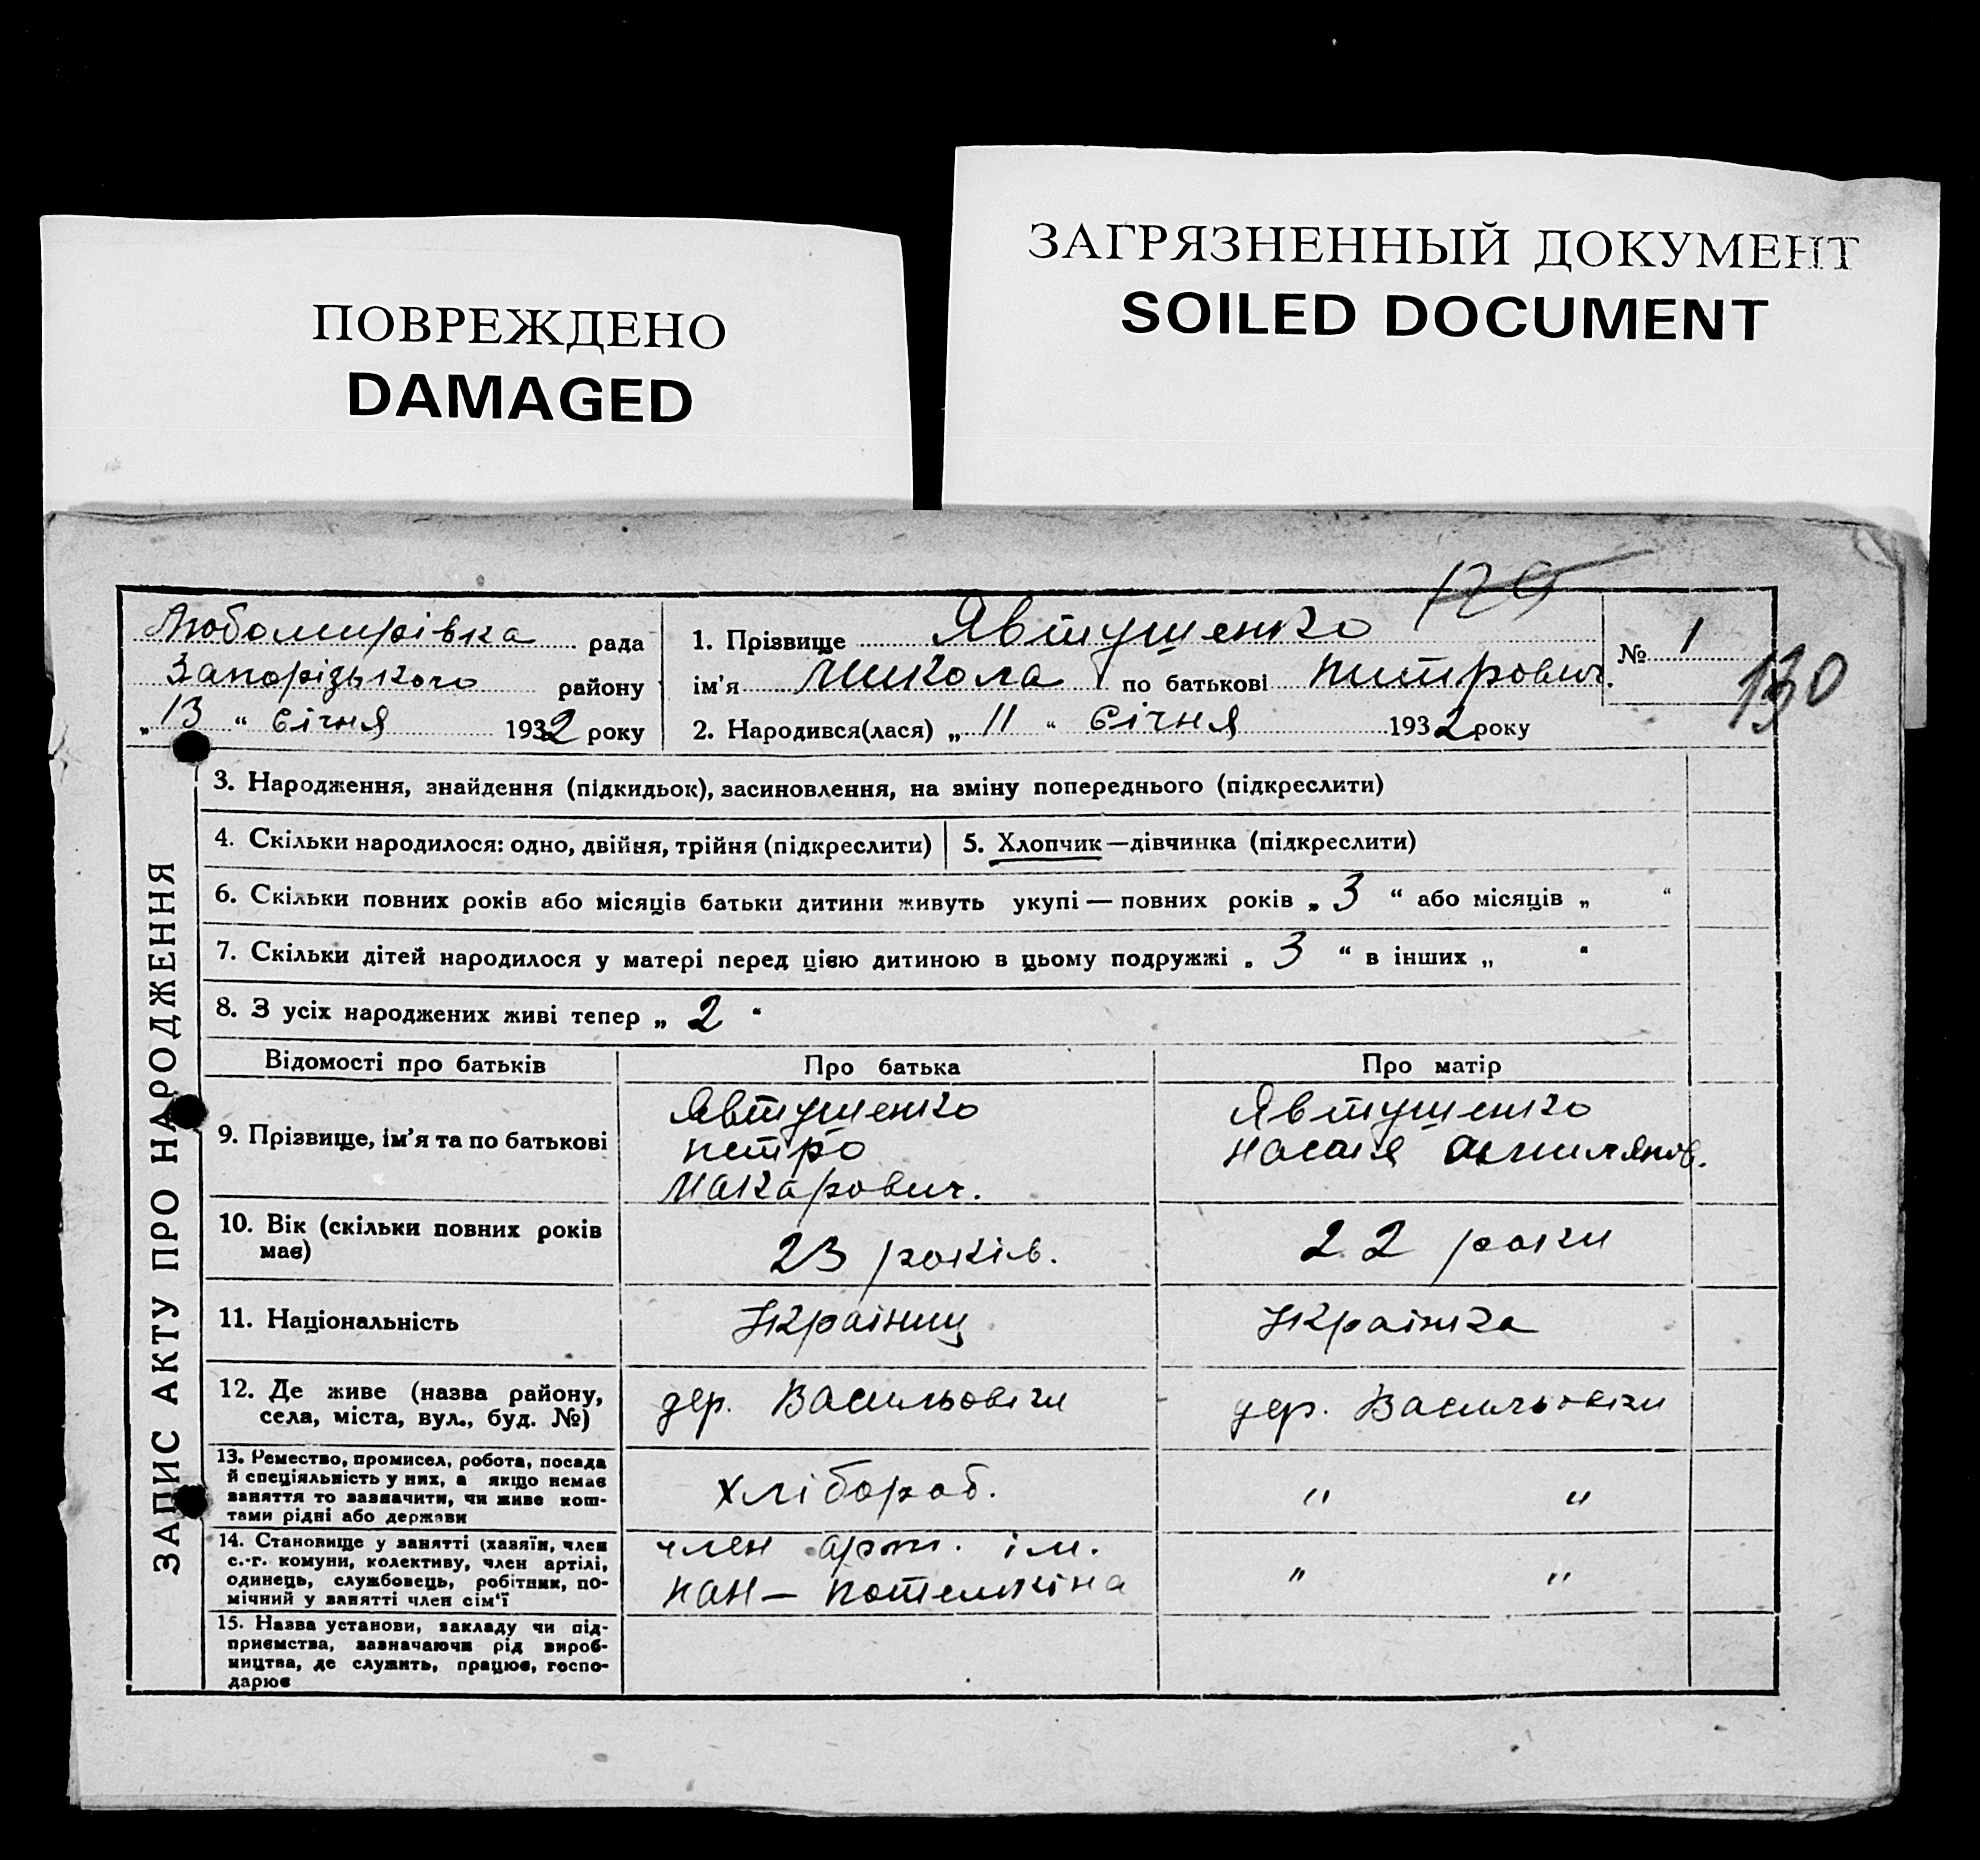 ПОВРЕЖДЕНО
DAMAGED
ЗАГРЯЗНЕННЫЙ ДОКУМЕНТ
SOILED DOCUMENT
129
Любомирівка рада
Запорізького району
„ 13 “ Січня 1932 року
1. Прізвище Явтушенко
ім’я Микола по батькові Питрович.
2. Народився(лася) „ 11 “ Січня 1932 року
№ 1
130
ЗАПИС АКТУ ПРО НАРОДЖЕННЯ
3. Народження, знайдення (підкидьок), засиновлення, на зміну попереднього (підкреслити)
4. Скільки народилося: одно, двійня, трійня (підкреслити)
5. Хлопчик—дівчинка (підкреслити)
6. Скільки повних років або місяців батьки дитини живуть укупі — повних років „ 3 “ або місяців „ “
7. Скільки дітей народилося у матері перед цією дитиною в цьому подружжі „ 3 “ в інших „ “
8. З усіх народжених живі тепер „ 2 “
Відомості про батьків
Про батька
Про матір
9. Прізвище, ім’я та по батькові
Явтушенко
петро
Макарович.
Явтушенко
10. Вік (скільки повних років
має)
23 років.
22 роки
11. Національність
Україниц
Українка
12. Де живе (назва району,
села, міста, вул., буд. №)
дер. Васильовічи
дер. Васильовічи
13. Ремество, промисел, робота, посада
й спеціяльність у них, а якщо немає
заняття то зазначити, чи живе кош-
тами рідні або держави
хлібороб.
" "
14. Становище у занятті (хазяїн, член
с.-г. комуни, колективу, член артілі,
одинець, службовець, робітник, по-
мічний у занятті член сім’ї
член арт. ім.
пан— потемкіна
" "
15. Назва установи, закладу чи під-
приємства, зазначаючи рід вироб-
ництва, де служить, працює, госпо-
дарює